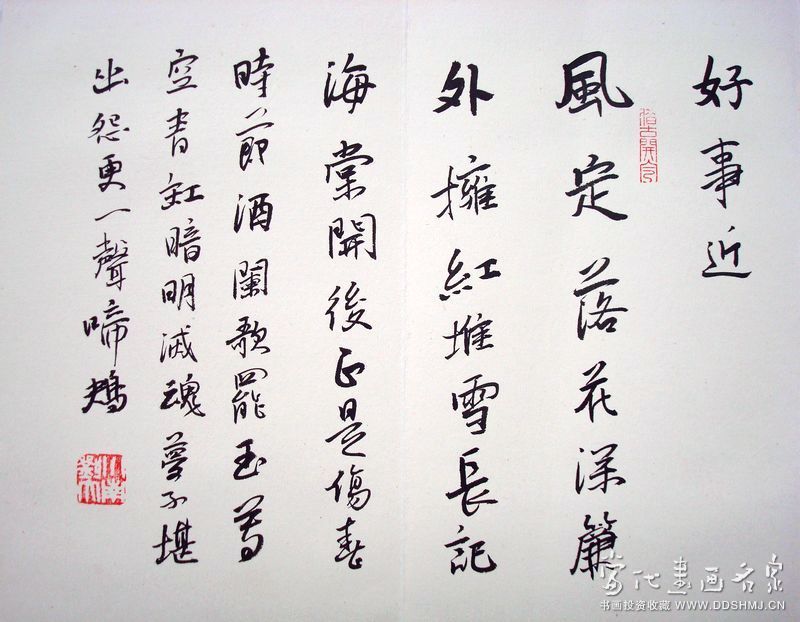 好事近
風定落花深簾
外擁紅堆雪長記
海棠開後正是傷春
時節酒闌歌罷玉尊
空青缸暗明滅魂夢不堪
幽怨更一聲啼鴂
當代書画名家
书画投资收藏 WWW.DDSHMJ.CN